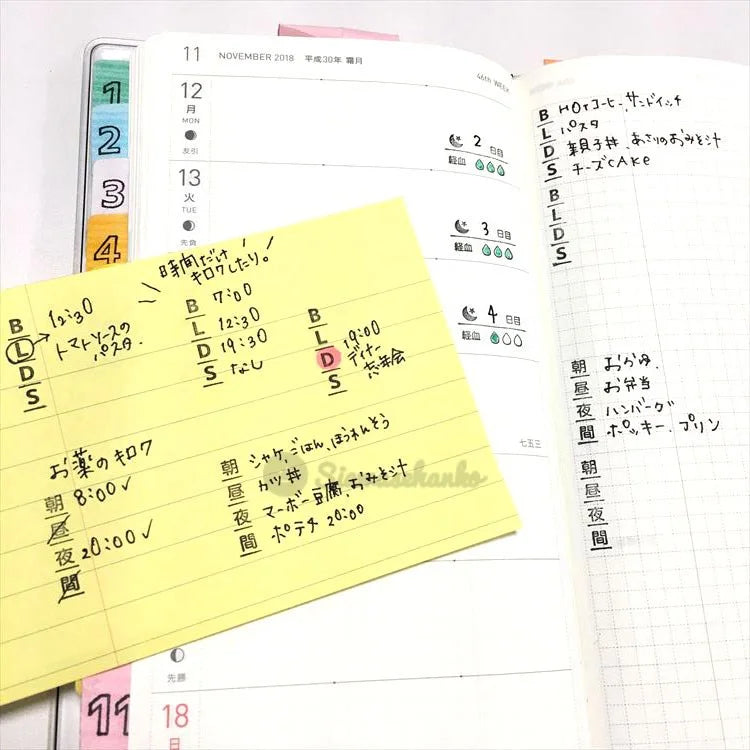 1
2
3
4
11
11 NOVEMBER 2018 平成30年 霜月
46th WEEK
12
月
MON
友引
2日目
経血
13
火
TUE
先負
3日目
経血
4日目
経血
七五三
先勝
18
日
B HOTコーヒー、サンドイッチ
L パスタ
D 親子丼、あさりのおみそ汁
S チーズCAKe
B
L
D
S
朝 おかゆ
昼 お弁当
夜 ハンバーグ
間 ポッキー、プリン
朝
昼
夜
間
時間だけ
キロクしたり。
B
L 12:30
トマトソースの
パスタ.
D
S
B 7:00
L 12:30
D 19:30
S なし
B
L
D 19:00
ディナー
忘年会
S
お薬のキロク
朝 8:00✓
昼
夜 20:00✓
間
朝 シャケ、ごはん、ほうれんそう
昼 カツ丼
夜 マーボー豆腐、おみそ汁
間 ポテチ 20:00